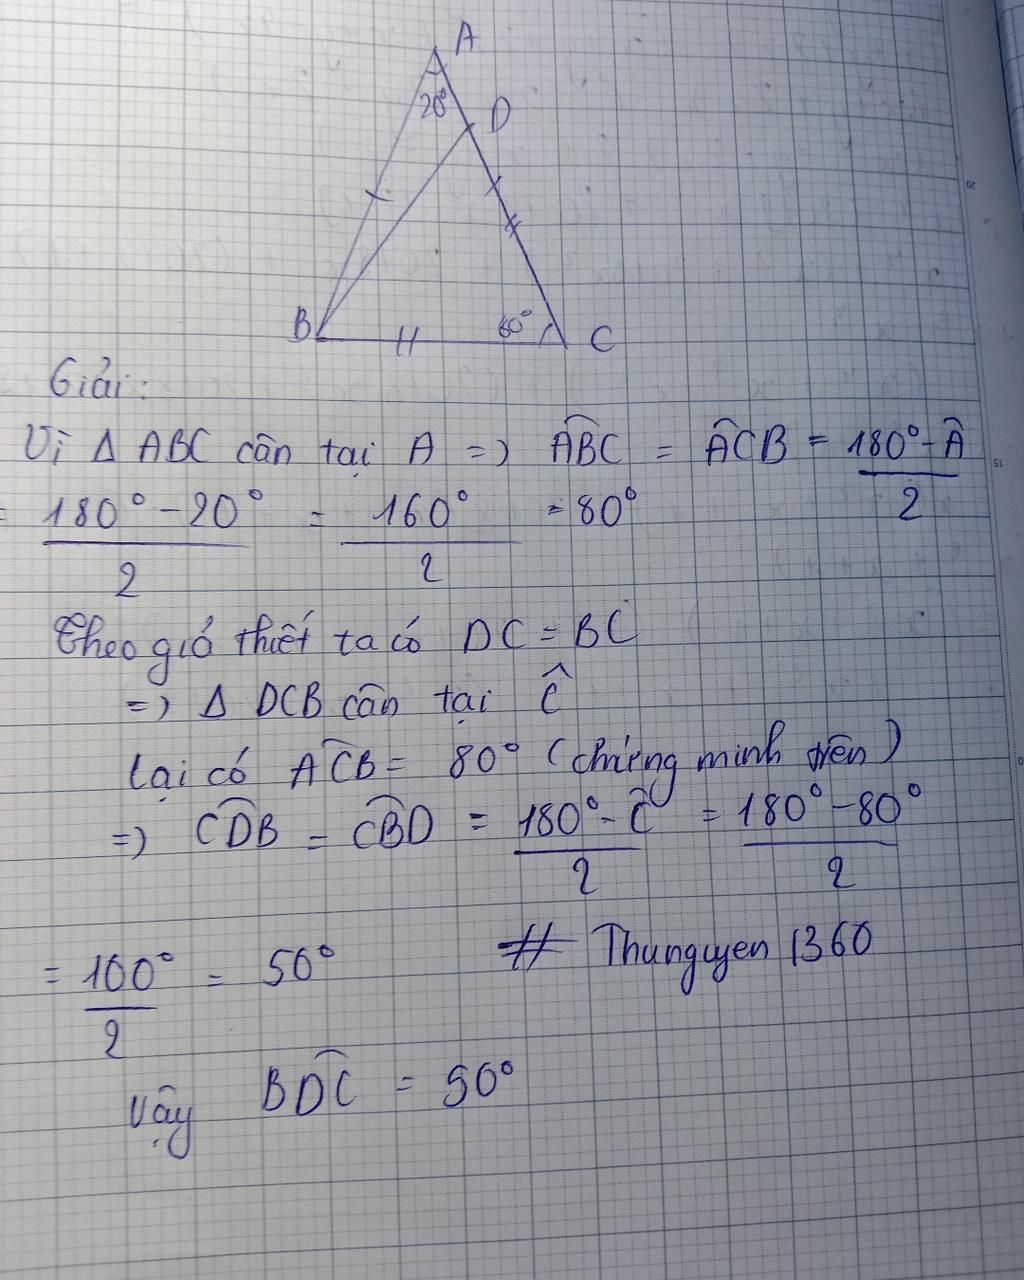 A
20°
D
B
60°
C
Giải:
Vì Δ ABC cân tại A => ABC = ACB = 180° - Â / 2
= 180° - 20° / 2 = 160° / 2 = 80°
Theo giả thiết ta có DC = BC
=> Δ DCB cân tại Ĉ
lại có ACB = 80° (chứng minh trên)
=> CDB = CBD = 180° - Ĉ / 2 = 180° - 80° / 2
= 100° / 2 = 50° # Thunguyen 1360
Vậy BDC = 50°
20
15